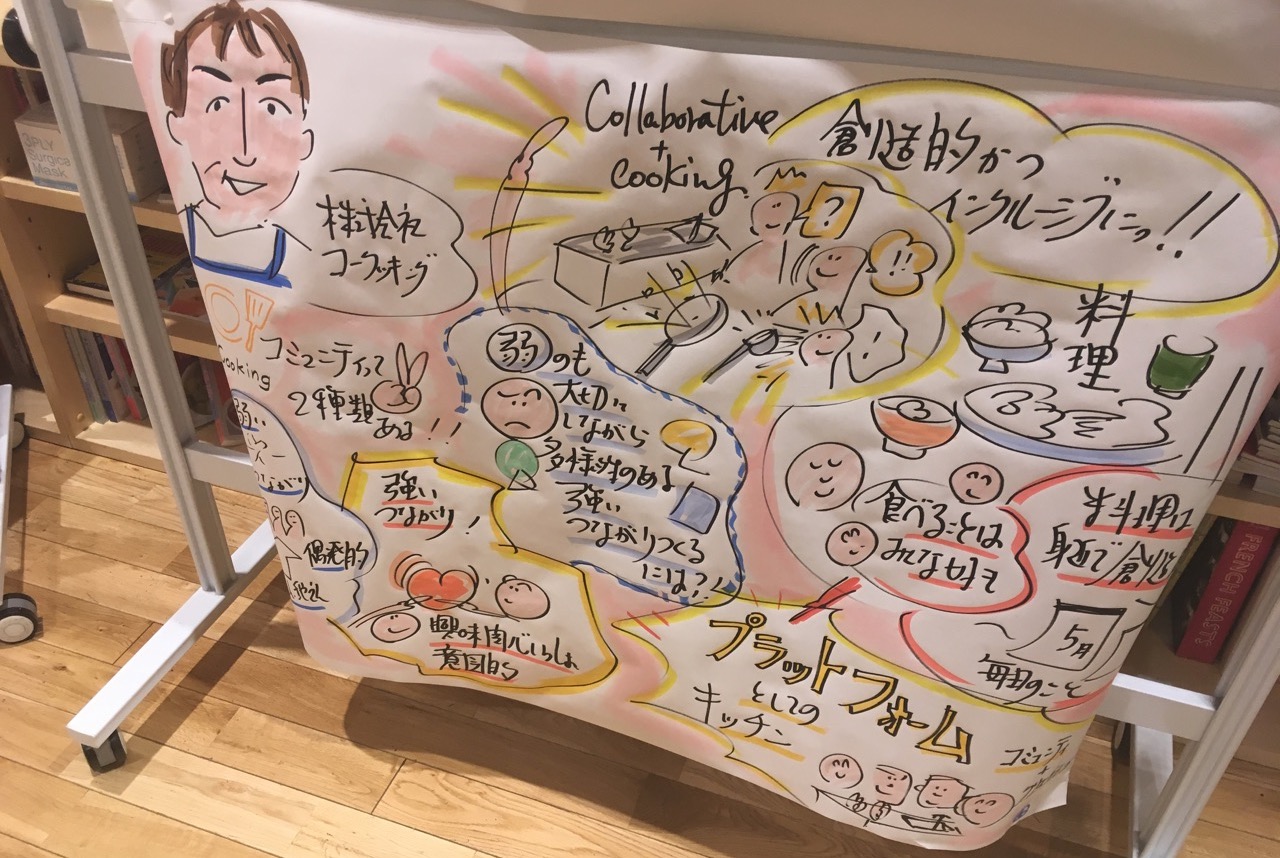 3PLY
Surgical
Mask
株式会社
コークッキング
Collaborative
+
cooking
創造的かつ
インクルーシブにっ!!
?
!!
料
理
cooking
コミュニティって
2種類
ある!!
弱い
偶発的
強い
つながり!
興味関心いらしは
意図的
弱のも
大切に
しながら
多様的のある
強い
つながりつくる
には?!
食べることは
みんな好き
料理は
身近で創造
5月
毎日のこと
プラットフォーム
としての
キッチン
コミュニティ
+
FRENCH FEASTS